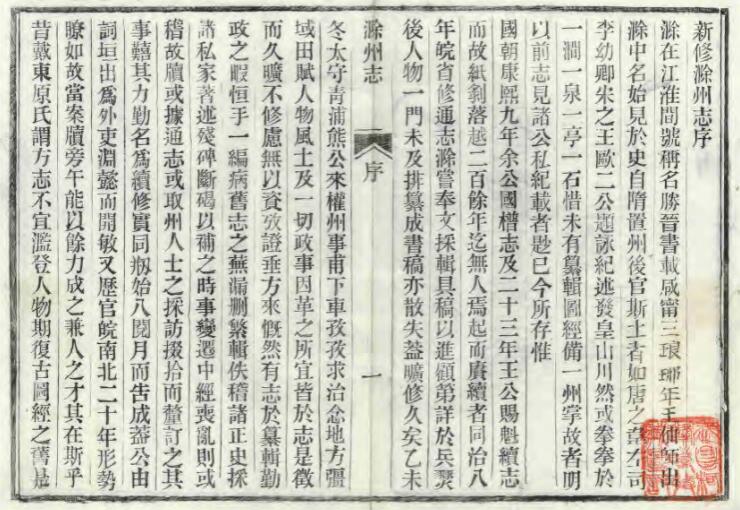 新修滁州志序
滁在江淮間號稱名勝晉書載咸甯三年琅琊王伷師出
滁中名始見於史自隋置州後官斯土者如唐之韋左司
李幼卿宋之王歐二公題詠紀述發皇山川然或拳拳於
一澗一泉一亭一石惜未有纂輯圖經備一州掌故者明
以前志見諸公私紀載者尟已今所存惟
國朝康熙九年余公國㯳志及二十三年王公賜魁續志
而故紙剝落越二百餘年迄無人焉起而賡續者同治八
年皖省修通志滁嘗奉文採輯具稿以進顧第詳於兵燹
後人物一門未及排纂成書稿亦散失蓋曠修久矣乙未
滁州志
序
一
冬太守青浦熊公來權州事甫下車孜孜求治念地方疆
域田賦人物風土及一切政事因革之所宜皆於志是徵
而久曠不修慮無以資攷證垂方來慨然有志於纂輯勤
政之暇恒手一編病舊志之蕪漏刪繁輯佚稽諸正史採
諸私家著述殘碑斷碣以補之時事變遷中經喪亂則或
稽故牘或據通志或取州人士之採訪掇拾而釐訂之其
事囏其力勤名為續修實同剏始八閱月而告成蓋公由
詞垣出為外吏淵懿而開敏又歷官皖南北二十年形勢
瞭如故當案牘旁午能以餘力成之兼人之才其在斯乎
昔戴東原氏謂方志不宜濫登人物期復古圖經之舊是